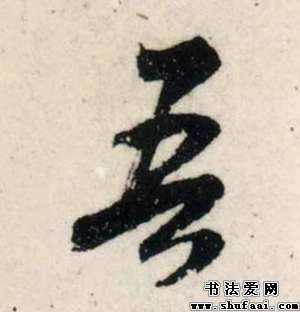 吾
书法爱网
www.shufaai.com